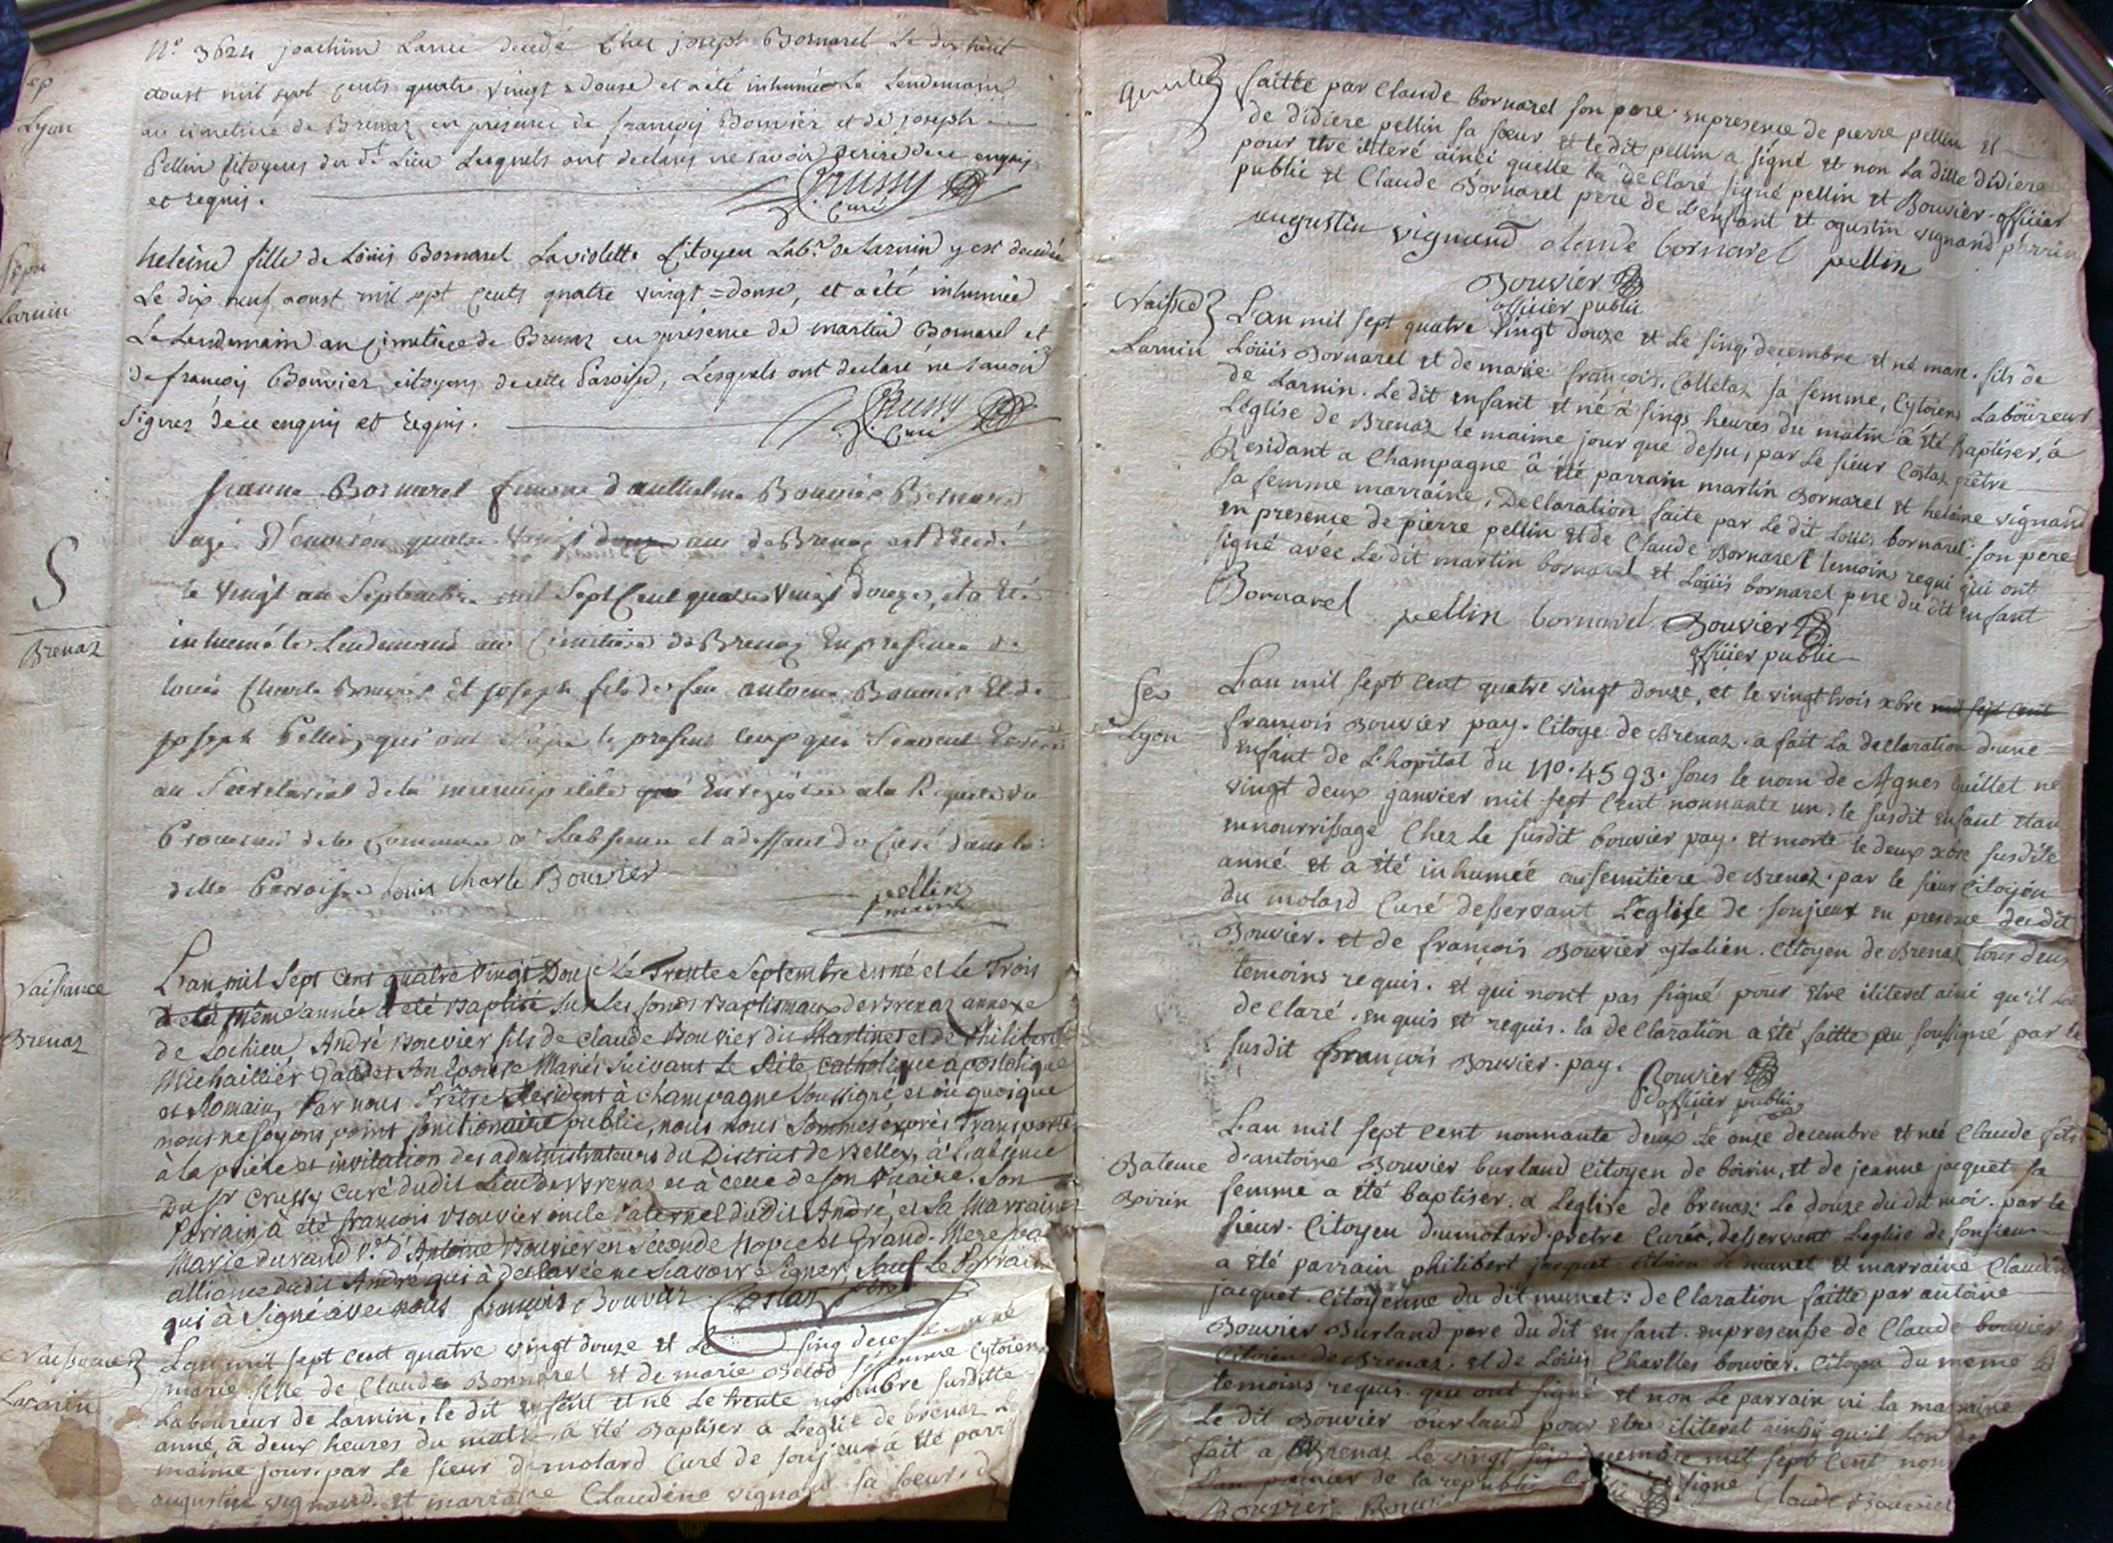 N° 3624 joachim Lance decedé chez joseph Bornarel Le dix huit
aoust mil sept cents quatre vingt = douse et a été inhumée Le Lendemain
Lyon
au cimetiere de Brenaz en presence de françois Bouvier et de joseph
Pellin Citoyens du dt Lieu Lesquels ont declarés ne savoir ecrire de ce enquis
et requis. Crussy
Curé
heleine fille de Loüis Bornarel Laviolette Citoyen Labr. de Larnin y est decedée
Sepre
Larnin
Le dix neuf aoust mil sept cents quatre vingt = douse, et a été inhumée
Le Lendemain au cimetiere de Brenaz en présence de martin Bornarel et
de françois Bouvier citoyens de cette Paroisse, Lesquels ont declaré ne savoir
signer de ce enquis et requis. Crussy
Curé
S
Brenaz
jeanne Bornarel femme d'anthelme Bouvier Bernard
agé D'environ quatre vingt ans de Brenaz est décedé
le vingt un Septembre mil Sept Cent quatre vingt douze, et a Eté
inhumé le Lendemain au Cimetiere de Brenaz En presence de
Louis Charle Bouvier Et joseph fils de feu antoine Bouvier Et de
joseph Pellin, qui ont signé le present ceux qui Scavent Ecrire
au Secretariat de la municipalité Enregistré a la Requete du
Procureur de la Commune a L'absence et a deffaut du Curé dans la
ditte Parroisse Louis Charle Bouvier
pellin
maire
Naissance
Brenaz
L'an mil Sept Cent quatre Vingt Douze Le Trente Septembre est né et Le Trois
de la même année a été Baptisé Sur Les fonds Baptismaux de Brenaz annexe
de Lochieu, André Bouvier fils de Claude Bouvier dit Martinet et de Philiberte
Michaillier Gaudet Son Epouse Mariés Suivant Le Rite Catholique apostolique
et Romain, Par nous Prêtre Résident à Champagne Soussigné, et où quoique
nous ne soyons point fonctionaire public, nous nous Sommes exprés Transporté
à la priere et invitation des administrateurs du District de Belley, à L'absence
Du Sr Crussy Curé dudit Lieu de Brenaz et à celle de son Vicaire. Son
Parrain à été françois Bouvier oncle Paternel du Dit André, et Sa Marraine
Marie durand Ve. d'Antoine Bouvier en Séconde Nopce et Grand-Mere par
alliance dudit André, qui à declarée ne Scavoir Signer, Sauf Le Parrain
qui à Signé avec nous françois Bouvier Costaz ptre
Naissance
Larnin
L'an mil sept cent quatre vingt douze et Le sinq decembre et né
marie fille de Claude Bornarel et de marie Belod sa femme Cytoiens
Laboureur de Larnin, le dit enfant et né Le trente novembre susditte
anné, à deux heures du matin a été Baptiser a Leglise de brenaz Le
maime jour, par Le sieur dumolard Curé de sonjeux à été parrain
augustin vignand et marraine Claudine vignand sa soeur d
faitte par Claude bornarel son pere en presence de pierre pellin et
de didiere pellin sa soeur et le dit pellin a signé et non la ditte didiere
pour être illiteré ainci quelle la declaré signé pellin et Bouvier officier
public et Claude Bornarel pere de L'enfant et ogustin vignand parrin
augustin vignand claude bornarel pellin
Bouvier
officier public
Naissce
Larnin
L'an mil sept quatre vingt douze et Le sinq decembre et né marc fils de
Loüis Bornarel et de marie françois Colletaz sa femme, Cytoiens Laboureur
de Larnin. Le dit enfant et né à sinq heures du matin à été Baptiser, à
L'eglise de Brenaz le maime jour que dessus, par Le sieur Costaz prêtre
Residant a Champagne à été parrain martin Bornarel et helaine vignand
sa femme marraine, Declaration faite par Le dit Louis bornarel son pere
en presence de pierre pellin et de Claude Bornarel temoins requi qui ont
signé avec Le dit martin bornarel et Loüis bornarel pere du dit enfant
Bornarel pellin bornarel Bouvier
officier public
Sep
Lyon
L'an mil sept cent quatre vingt douze, et le vingt trois xbre mil sept cent
françois Bouvier pay. Citoye. de Brenaz. a fait La declaration d'une
enfant de L'hopital du N°. 4593. sous le nom de Agnes Guillet né
vingt deux janvier mil sept cent nonnante un. le susdit enfant etan
ennourrissage Chez Le susdit bouvier pay. et morte le deux xbre susdite
anné et a été inhumée au semitiere de Brenaz. par le sieur Citoyen
du molard Curé desservant L'eglise de sonjeux en presence du dit
Bouvier. et de françois Bouvier ytalien. Citoyen de Brenaz tous deux
temoins requis. et qui n'ont pas signé pour être iliteret ainsi qu'il Lon
declaré. enquis et requis. la declaration a été faitte par
susdit françois Bouvier. pay. Bouvier
officier public
Bateme
Boirin
L'an mil sept cent nonnante deux Le onze decembre et né Claude fils
d'antoine Bouvier burland Citoyen de boirin, et de jeanne jacquet sa
femme a été baptiser a Leglise de brenaz: Le douze du dit moi. par le
sieur. Citoyen dumolard. pretre Curée, desservant Leglise de sonjeux
a été parrain philibert jacquet Citoien de munet et marraine Claudine
jacquet. Citoyenne du dit munet: declaration faitte par antoine
Bouvier Burland pere du dit enfant. en presensse de Claude bouvier
Citoien de Brenaz. et de Loüis Charlles bouvier. Citoyen du meme
temoins requis. qui ont signé et non Le parrain ni la marraine
Le dit Bouvier burland pour etre iliteret ainsi qu'il Lon
fait a Brenaz Le vingt mil sept cent non
L'an premier de la republi signe Claude Bouvier